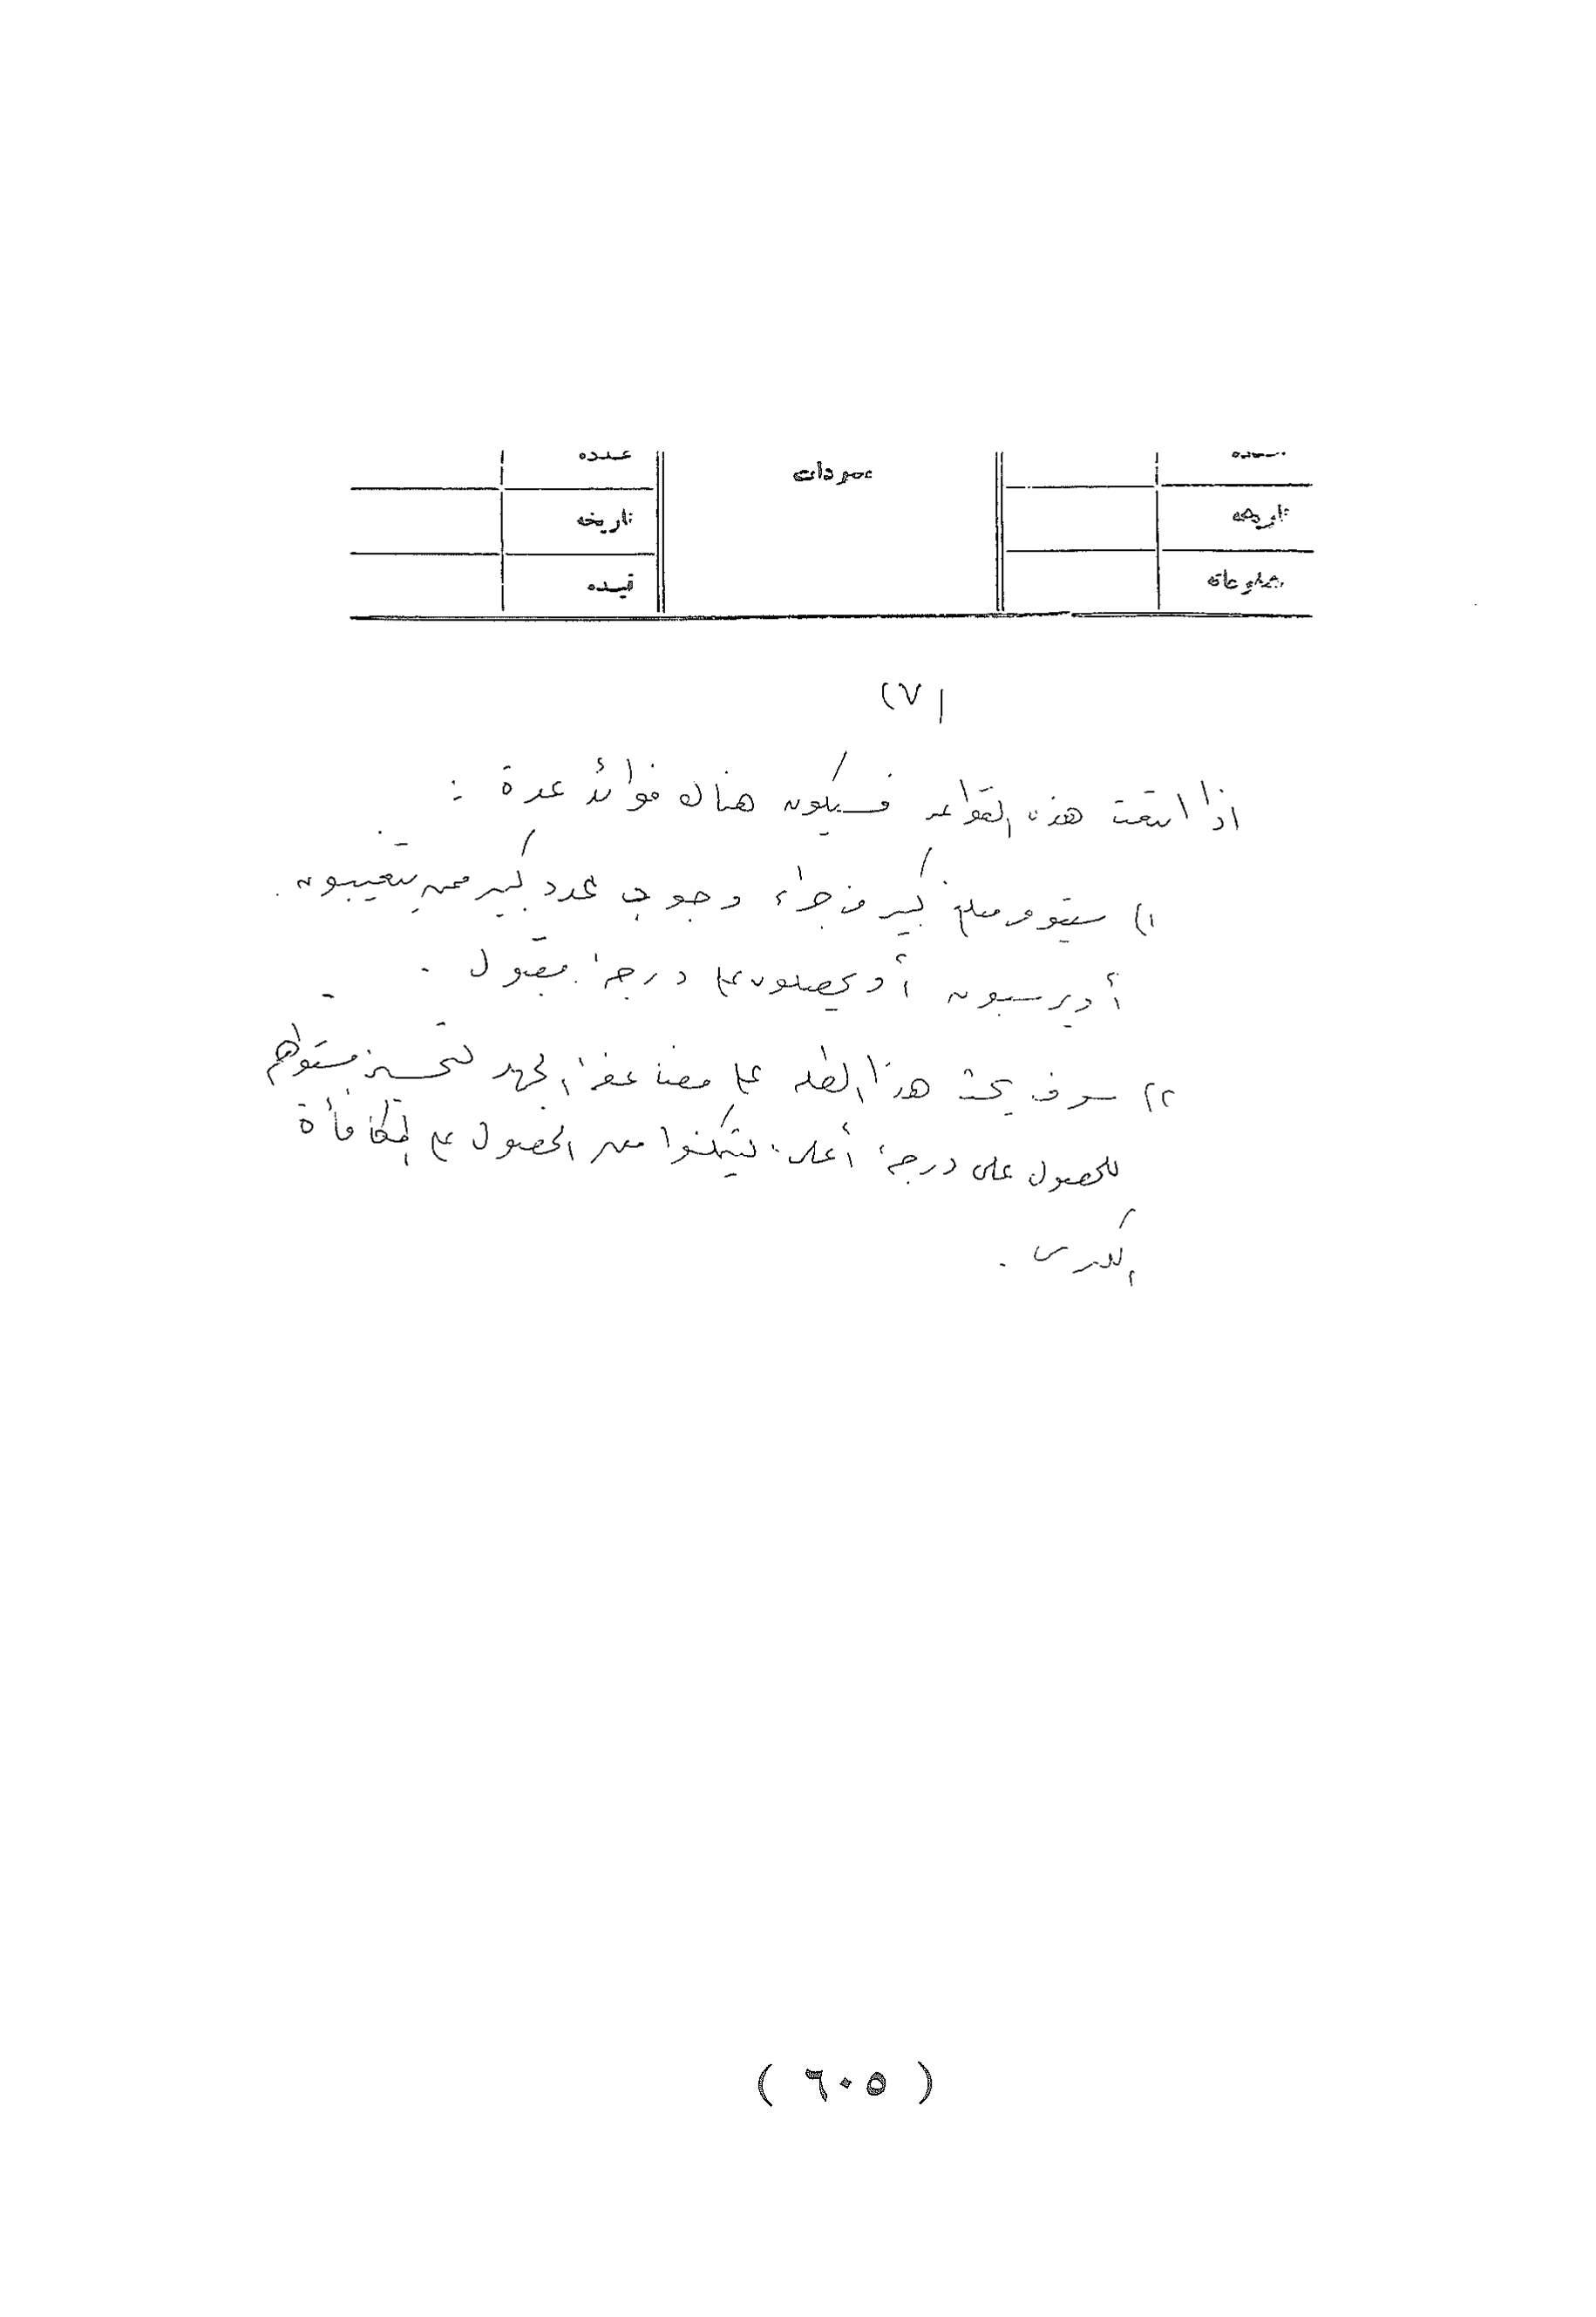 عدده
مسودات
تاريخه
تاريخه
قيده
(٧)
اذا اتبعت هذه القواعد فسيكون هناك فوائد عدة :
١) سيتوفر مبلغ كبير من جراء وجود عدد كبير ممن يتغيبون
أو يرسبون أو يحصلون على درجة مقبول .
٢) سوف يحث هذا الطلبة على مضاعفة الجهد لتحسين مستواهم
للحصول على درجة أعلى ليتمكنوا من الحصول على المكافأة
الكبرى .
( ٦٠٥ )